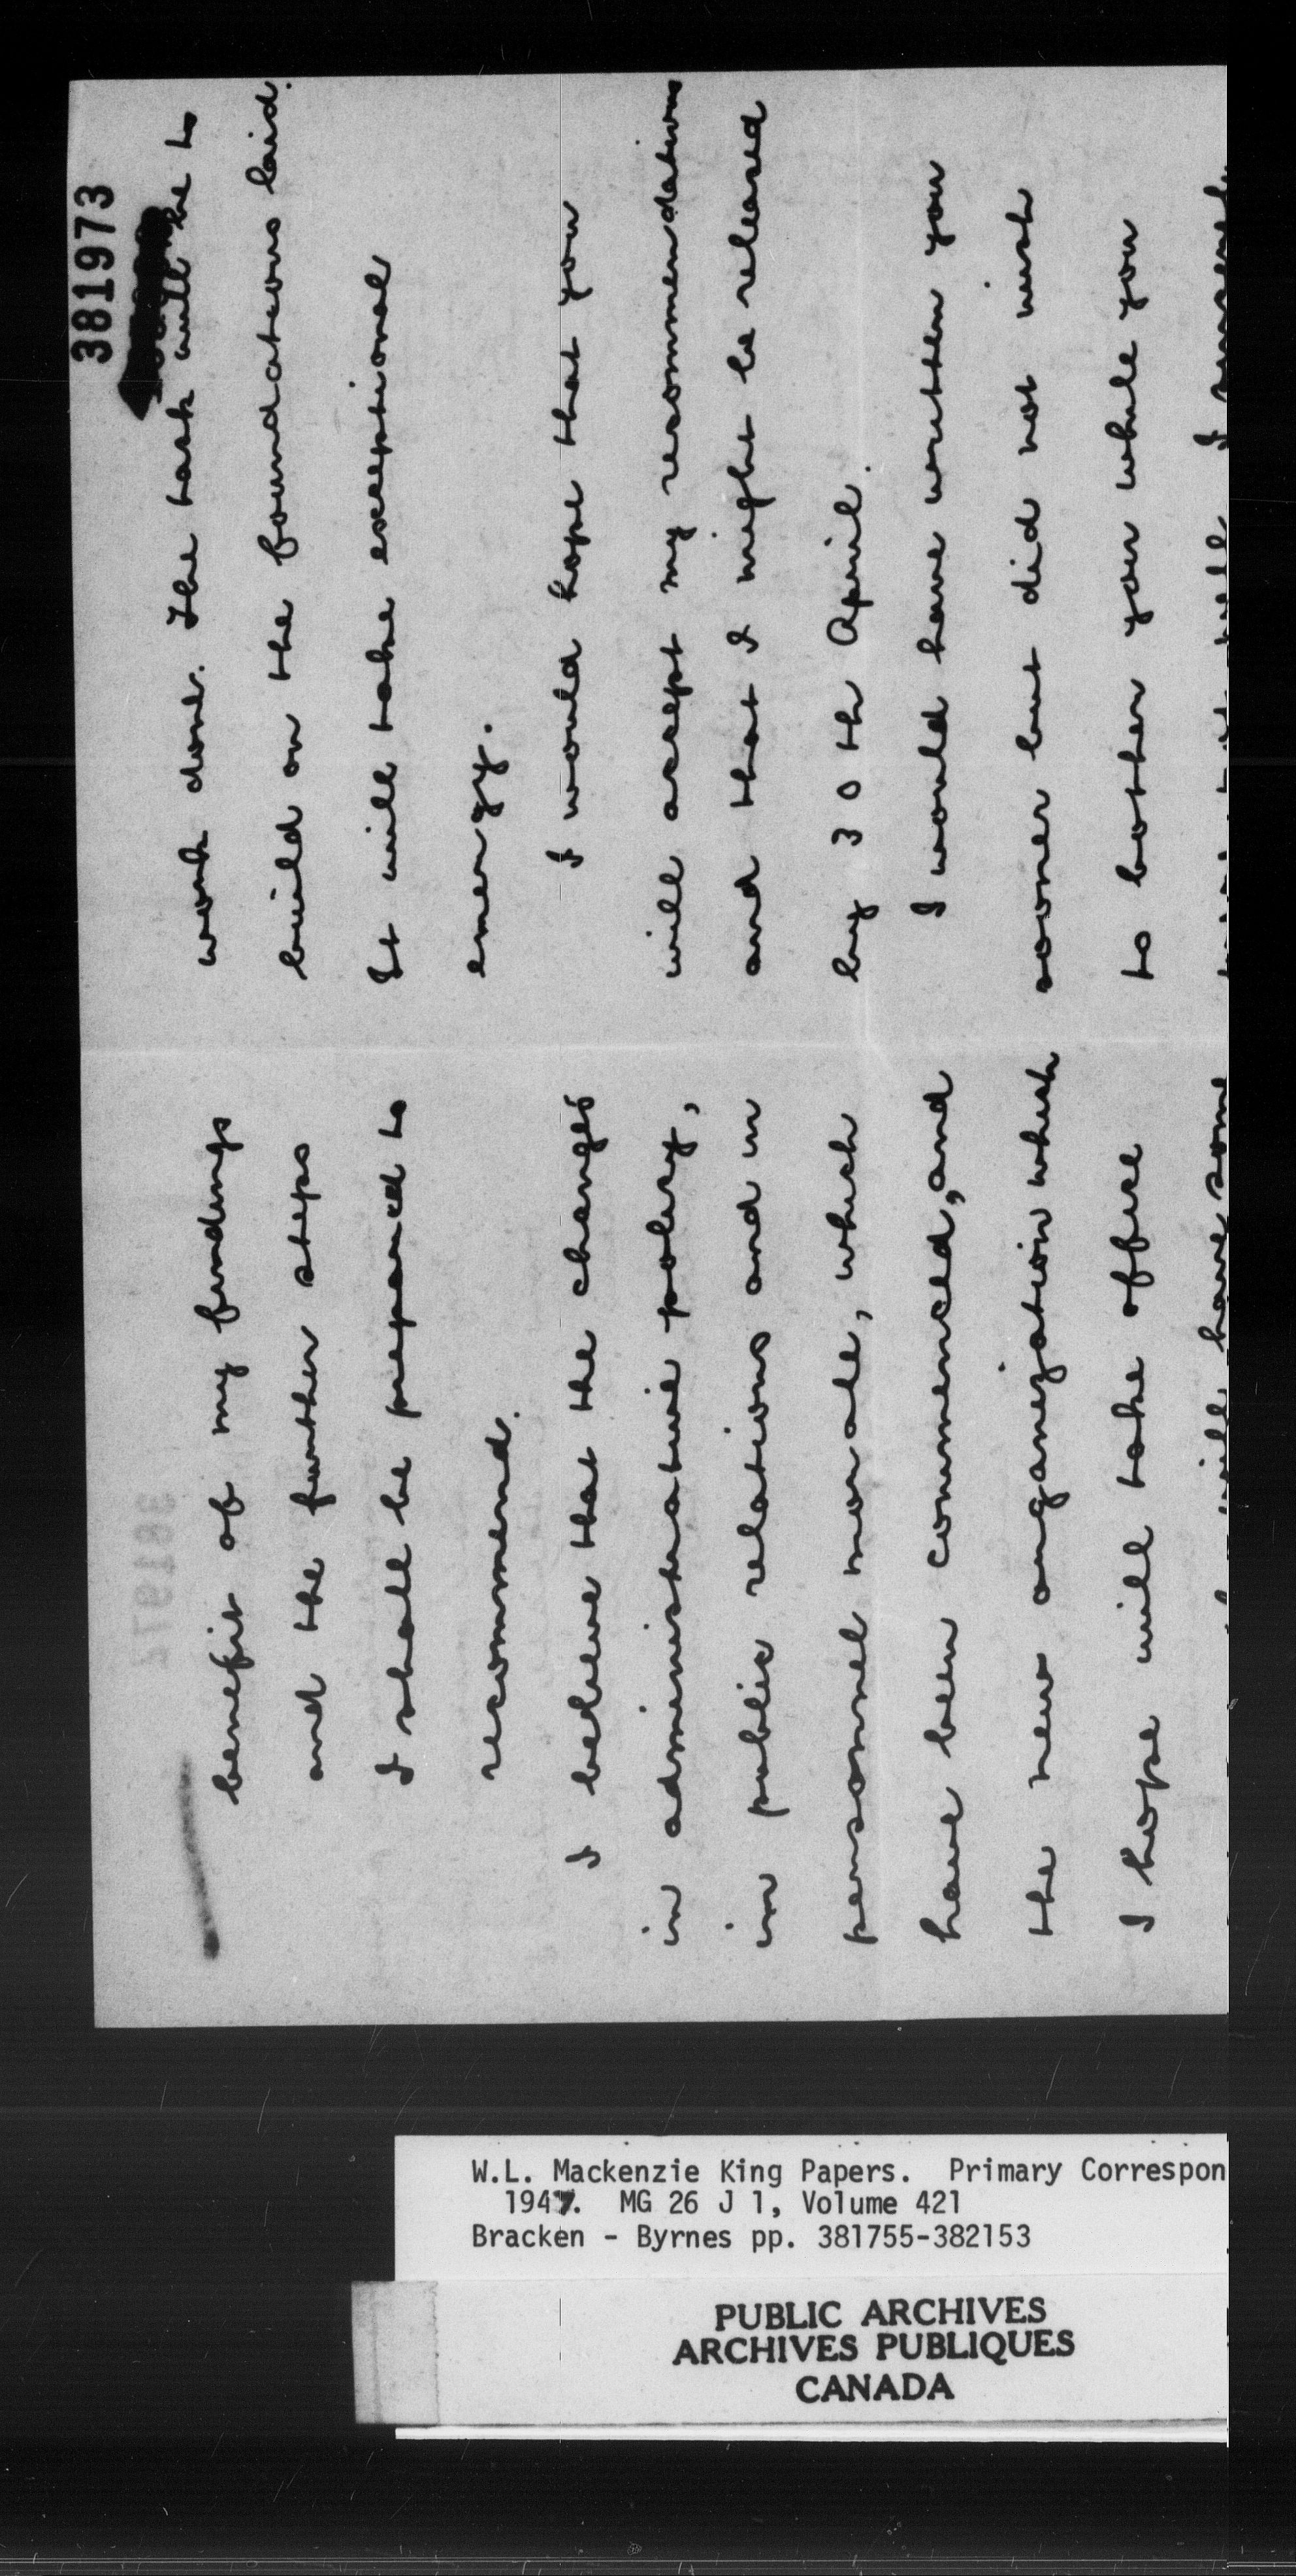 benefit of my findings
and the further steps
I shall be prepared to
recommend.
I believe that the changes
in administrative policy,
in public relations and in
personnel morale, which
have been commenced, and
the new organization which
I hope will take office
will have some
381973
work done. The task will be to
build on the foundations laid.
It will take exceptional
energy.
I would hope that you
will accept my recommendations
and that I might be released
by 30th April.
I would have written you
sooner but did not wish
to bother you while you
W.L. Mackenzie King Papers. Primary Correspon
1947. MG 26 J 1, Volume 421
Bracken - Byrnes pp. 381755-382153
PUBLIC ARCHIVES
ARCHIVES PUBLIQUES
CANADA